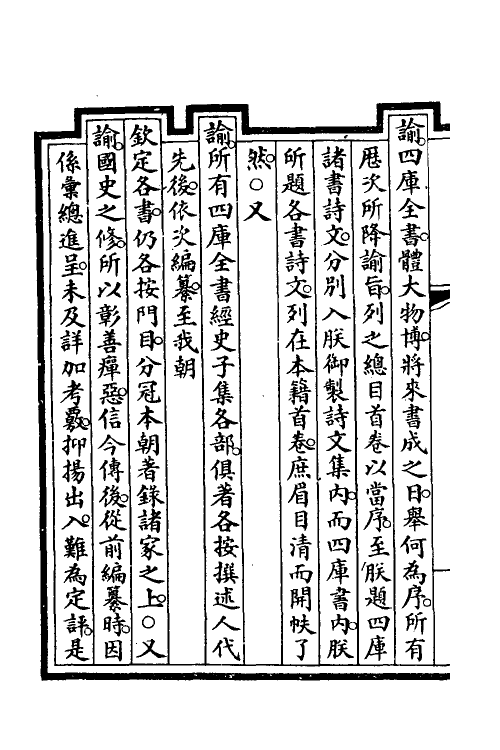 諭。四庫全書。體大物博。將來書成之日。舉何為序。所有
歷次所降諭旨。列之總目首卷以當序。至朕題四庫
諸書詩文。分別入朕御製詩文集內。而四庫書內。朕
所題各書詩文。列在本籍首卷。庶眉目清而開帙了
然。○又
諭。所有四庫全書經史子集各部。俱著各按撰述人代
先後。依次編纂。至我朝
欽定各書。仍各按門目。分冠本朝著錄諸家之上。○又
諭。國史之修。所以彰善癉惡。信今傳後。從前編纂時。因
係彙總進呈。未及詳加考覈。抑揚出入。難為定評。是